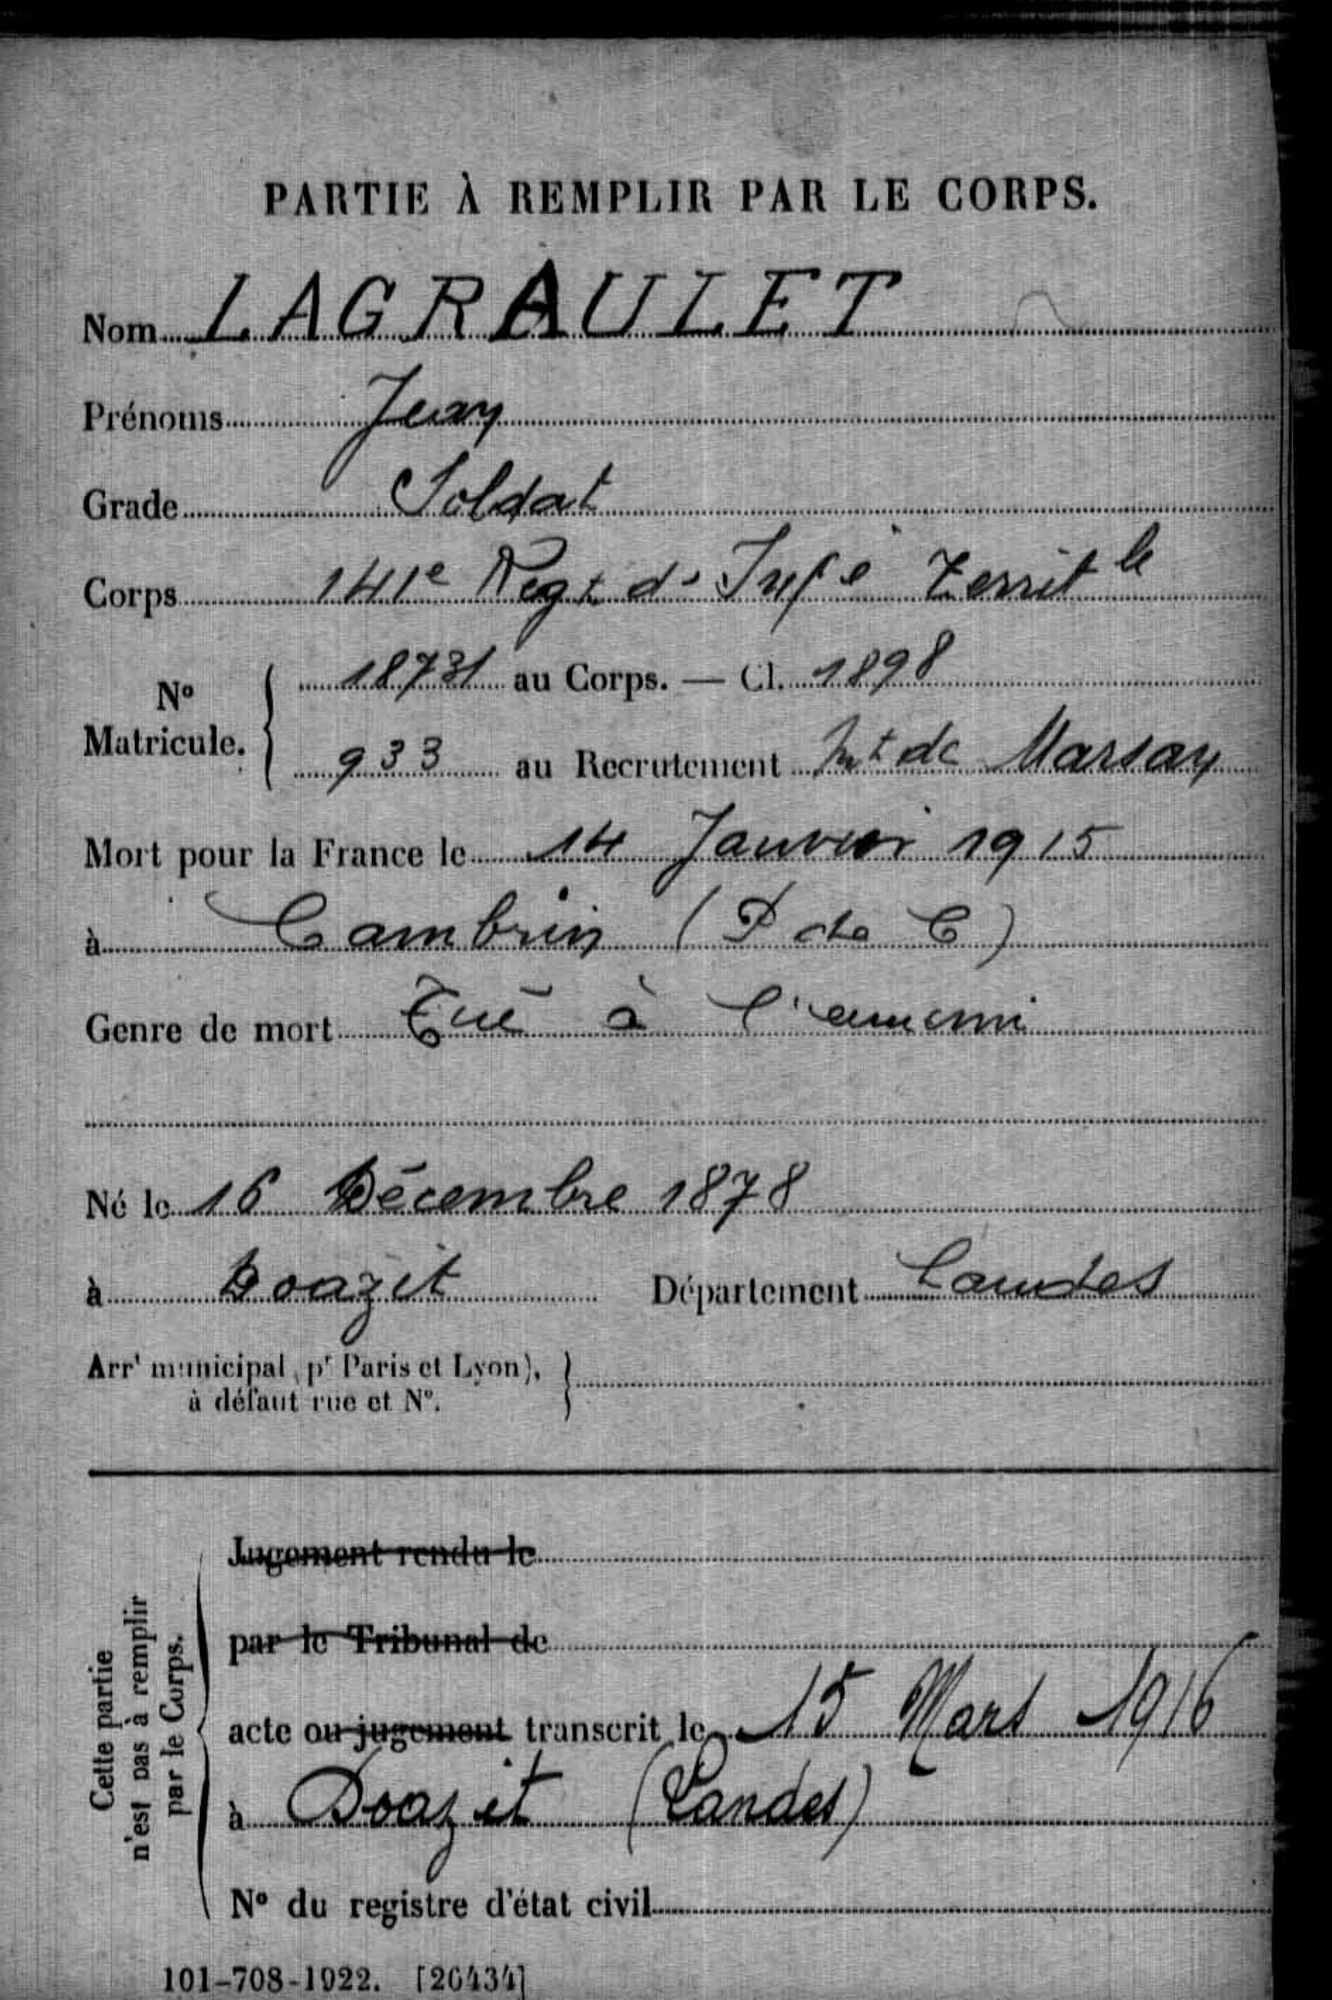 PARTIE À REMPLIR PAR LE CORPS.
Nom LAGRAULET
Prénoms Jean
Grade Soldat
Corps 141e Regt d' Infie Territle
No Matricule. 18731 au Corps. — Cl. 1898
933 au Recrutement Mt de Marsan
Mort pour la France le 14 Janvier 1915
à Cambrin (P de C)
Genre de mort Tué à l'ennemi
Né le 16 Décembre 1878
à Doazit Département Landes
Arrt municipal (pr Paris et Lyon),
à défaut rue et No.
Cette partie
n'est pas à remplir
par le Corps.
Jugement rendu le
par le Tribunal de
acte ou jugement transcrit le 15 Mars 1916
à Doazit (Landes)
No du registre d'état civil
101-708-1922. [26434]